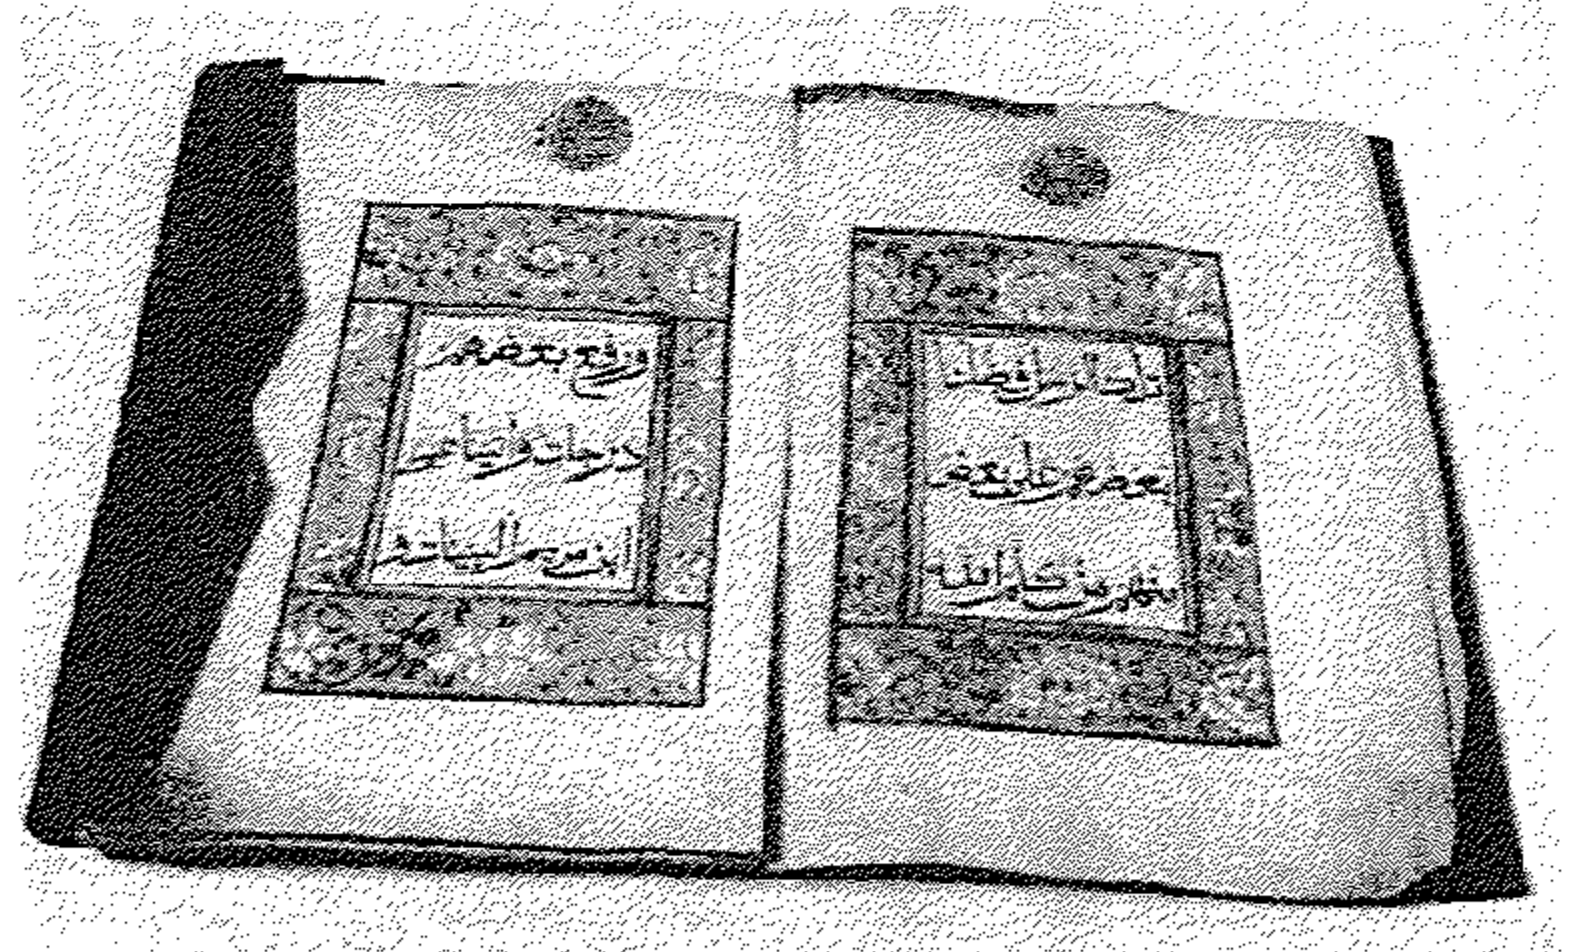 تلك الرسل فضلنا
بعضهم على بعض
منهم من كلم الله
ورفع بعضهم
درجات وآتينا عيسى
ابن مريم البينات و